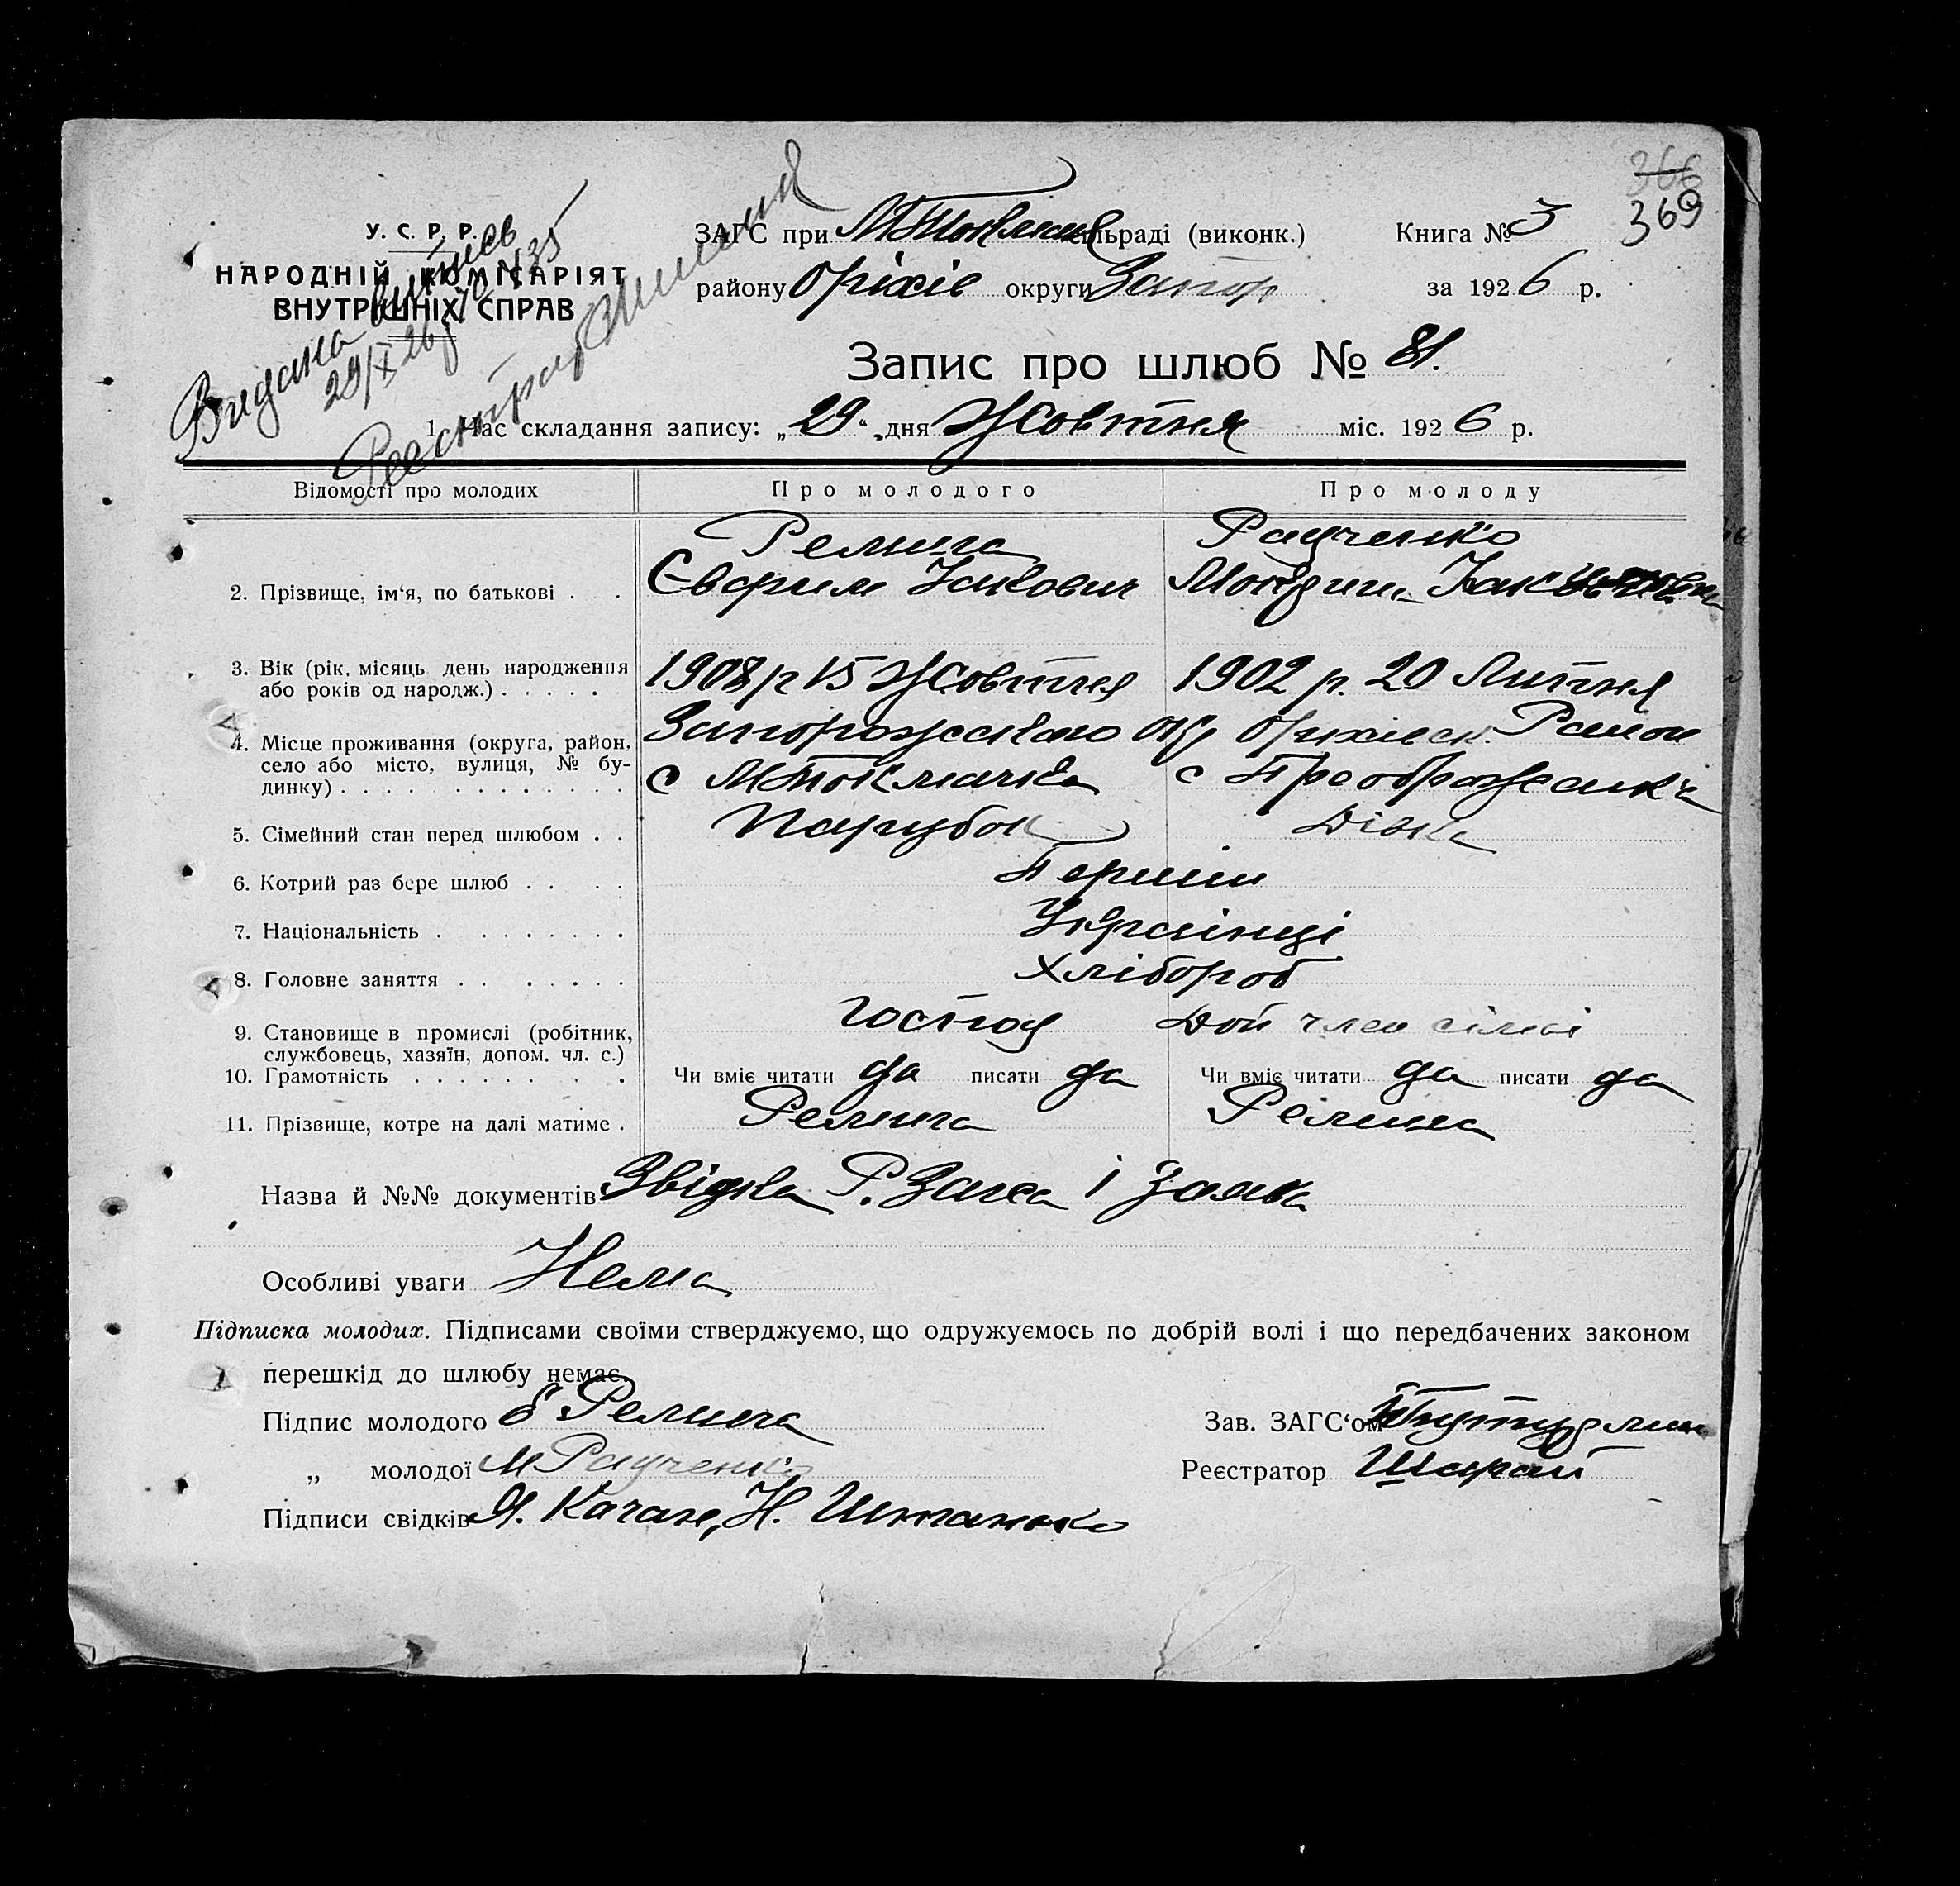 366
369
У. С. Р. Р.
НАРОДНІЙ КОМІСАРІЯТ
ВНУТРІШНІХ СПРАВ
Видана випись
29/X 26 р № 435
Реєстратор
ЗАГС при М Токмач сільраді (виконк.) Книга № 3
району Оріхів округи Запор за 1926 р.
Запис про шлюб № 81.
1. Час складання запису: „29“ дня Жовтня міс. 1926 р.
Відомості про молодих Про молодого Про молоду
Ремига Радченко
2. Прізвище, ім‘я, по батькові . . Євфрим Якович Мотрина Яківовна
3. Вік (рік, місяць день народження 1908 р 15 Жовтня 1902 р. 20 Липня
або років од народж.) . . . . .
4. Місце проживання (округа, район, Запорожського окр Оріхівськ. Район
село або місто, вулиця, № бу- с МТокмачка с Преображенка
динку) . . . . . . . . . . . . .
5. Сімейний стан перед шлюбом . . Парубок Дівка
6. Котрий раз бере шлюб . . . . Перший
7. Національність . . . . . . . . Українці
8. Головне заняття . . . . . . . Хлібороб
9. Становище в промислі (робітник, Господ Доп член сімьі
службовець, хазяїн, допом. чл. с.)
10. Грамотність . . . . . . . . Чи вміє читати да писати да Чи вміє читати да писати да
11. Прізвище, котре на далі матиме . Ремига Ремига
Назва й №№ документів Звідка Р. Загса і Заява
Особливі уваги Нема
Підписка молодих. Підписами своїми стверджуємо, що одружуємось по добрій волі і що передбачених законом
перешкід до шлюбу немає.
Підпис молодого Є Ремига Зав. ЗАГС‘ом
„ молодої М Радченко Реєстратор Шарай
Підписи свідків Я. Качан, Н. Штанько